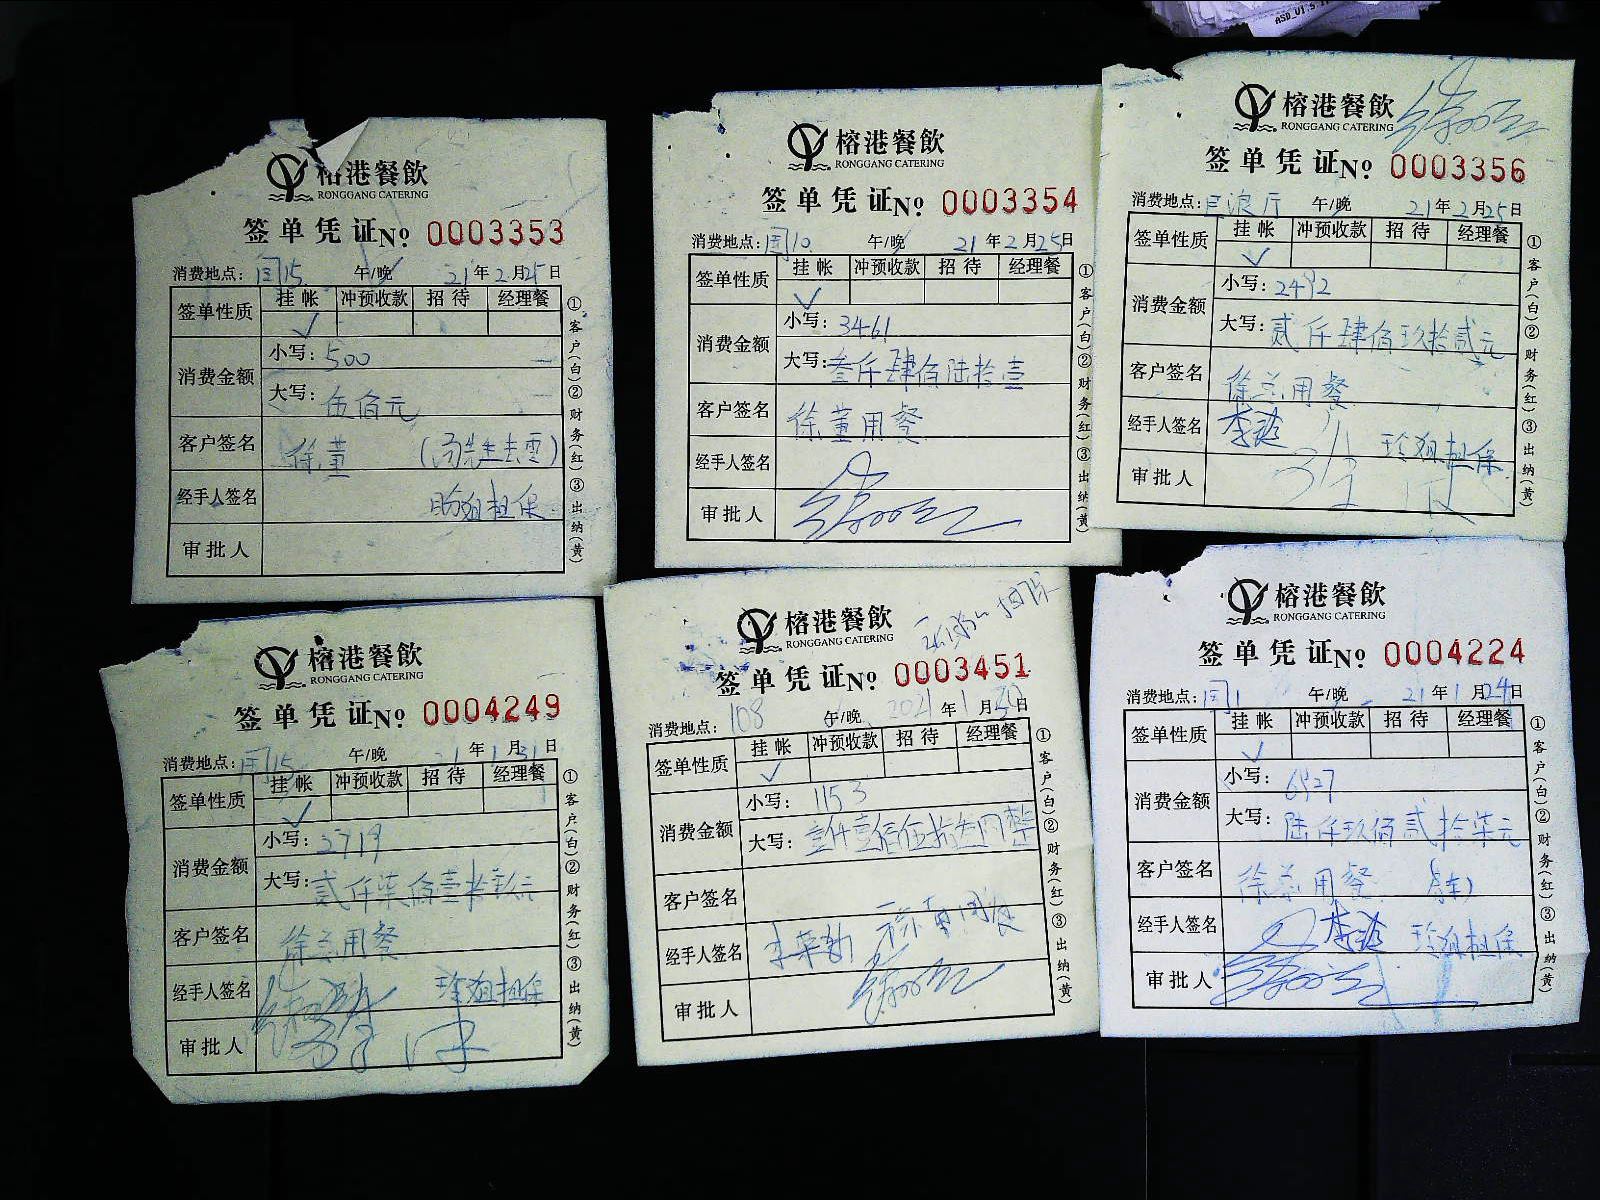 ASD_V1.5
榕港餐飲
RONGGANG CATERING
签单凭证No 0003353
消费地点: 闰15 午/晚 21年2月25日
签单性质 挂帐 冲预收款 招待 经理餐
✓
消费金额 小写: 500
大写: 伍佰元
客户签名 徐董
经手人签名 担保
审批人
①客户(白)②财务(红)③出纳(黄)
榕港餐飲
RONGGANG CATERING
签单凭证No 0003354
消费地点: 10 午/晚 21年2月25日
签单性质 挂帐 冲预收款 招待 经理餐
✓
消费金额 小写: 3461
大写: 叁仟肆佰陆拾壹
客户签名 徐董用餐
经手人签名
审批人
①客户(白)②财务(红)③出纳(黄)
榕港餐飲
RONGGANG CATERING
签单凭证No 0003356
消费地点: 浪厅 午/晚 21年2月25日
签单性质 挂帐 冲预收款 招待 经理餐
✓
消费金额 小写: 2492
大写: 贰仟肆佰玖拾贰元
客户签名 徐总用餐
经手人签名 玲姐担保
审批人
①客户(白)②财务(红)③出纳(黄)
榕港餐飲
RONGGANG CATERING
签单凭证No 0004249
消费地点: 15 午/晚 21年1月31日
签单性质 挂帐 冲预收款 招待 经理餐
✓
消费金额 小写: 2719
大写: 贰仟柒佰壹拾玖元
客户签名 徐总用餐
经手人签名 玲姐担保
审批人
①客户(白)②财务(红)③出纳(黄)
榕港餐飲
RONGGANG CATERING
签单凭证No 0003451
消费地点: 108 午/晚 2021年1月30日
签单性质 挂帐 冲预收款 招待 经理餐
✓
消费金额 小写: 1153
大写: 壹仟壹佰伍拾叁门整
客户签名
经手人签名
审批人
①客户(白)②财务(红)③出纳(黄)
榕港餐飲
RONGGANG CATERING
签单凭证No 0004224
消费地点: 1 午/晚 21年1月24日
签单性质 挂帐 冲预收款 招待 经理餐
✓
消费金额 小写: 6927
大写: 陆仟玖佰贰拾柒元
客户签名 徐总用餐
经手人签名 玲姐担保
审批人
①客户(白)②财务(红)③出纳(黄)